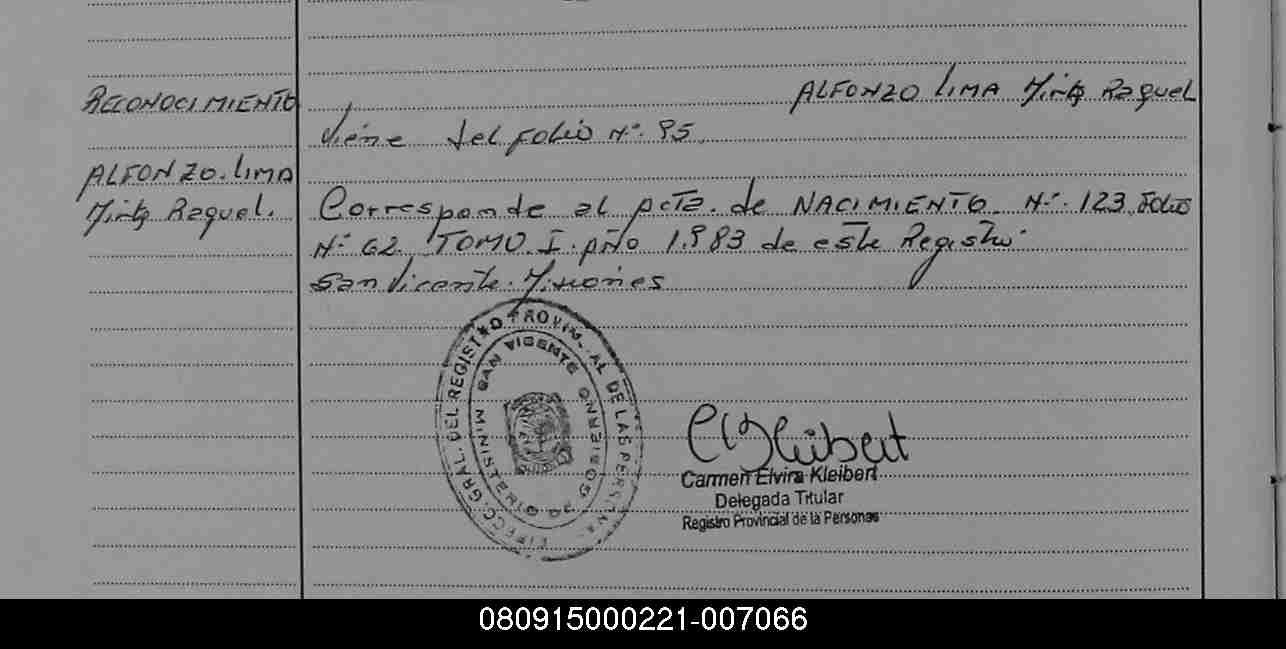 RECONOCIMIENTO
ALFONZO. LIMA
Mirta Raquel.
ALFONZO LIMA Mirta Raquel
Viene del folio Nº. 95.
Corresponde al Acta. de NACIMIENTO Nº. 123 Folio
Nº 62 TOMO. I. Año 1.983 de este Registro.
San Vicente. Misiones
GRAL. DEL REGISTRO PROVINCIAL DE LAS PERSONAS
MINISTERIO DE GOBIERNO
SAN VICENTE
Carmen Elvira Kleibert
Delegada Titular
Registro Provincial de la Personas
080915000221-007066